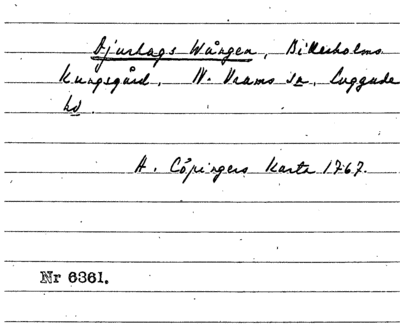 Djurlags Wången, Billesholms
Kungsgård, N. Vrams sn, Luggude
hd.
A. Cöpingers Karta 1767.
Nr 6361.